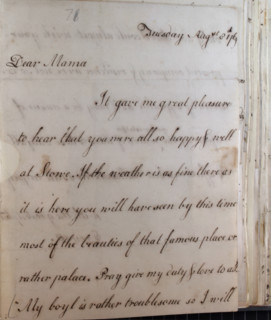 78
Thursday Aug
Dear Mama
It gave me great pleasure
to hear that you were all so happy & well
at Stowe. If the weather is as fine there as
it is here you will have seen by this time
most of the beauties of that famous place or
rather palace. Pray give my duty & love to all
My boyl is rather troublesome so I will